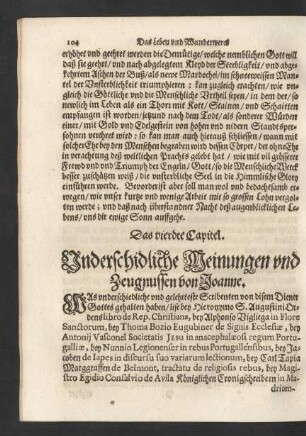 104 Das Leben vnd Wunderwerck
erhöhet vnd geehret werden die Demütige/ welche nemblichen Gott will
daß sie geehrt/ vnd nach abgelegtem Kleyd der Sterbligkeit/ vnd abge-
kehrtem Aschen der Buß/ als newe Mardochei/ im schneeweissen Man-
tel der Vnsterblichkeit triumphieren: kan zugleich erachten/ wie vn-
gleich die Göttliche vnd die Menschliche Vrtheil seyen/ in dem der/ so
newlich im Leben als ein Thor mit Kott/ Stainen/ vnd Schaitten
empfangen ist worden/ jetzund nach dem Todt/ als sonderer Würden
einer/ mit Gold vnd Edelgstein von hohen vnd nidern Standspersoh-
nen verehret wird: so kan man auch hierauß schliessen/ wann mit
solcher Ehr bey den Menschen begraben wird dessen Cörper/ der ohn Ehr
in verachtung deß weltlichen Prachts gelebt hat/ wie mit vil grösserer
Frewd vnd Triumph der Engeln/ Gott/ so die Menschliche Werck
besser zuschätzen waiß/ die vnsterbliche Seel in die Himmlische Glory
einführen werde. Bevorderist aber soll man wol vnd bedachtsamb er-
wegen/ wie vnser kurtze vnd wenige Arbeit mit so grossem Lohn vergol-
ten werde; vnd daß nach überstandener Nacht deß augenblicklichen Le-
bens/ vns die ewige Sonn auffgehe.
Das vierdte Capitel.
Vnderschidliche Meinungen vnd
Zeugnussen von Joanne.
WAs vnderschidliche vnd gelehrteste Scribenten von disem Diener
Gottes gehalten haben/ lise bey Hieronymo S. Augustini Or-
dens/ lib. 1. de Rep. Christiana, bey Alphonso Vigliega in Flore
Sanctorum, bey Thoma Bozio Eugubinez de Signis Ecclesiæ, bey
Antonij Vasconel Societatis Jesu in anacephalæosi regum Portu-
galliæ, bey Nunnio Legionenser in rebus Portugallensibus, bey Ja-
coben de Iapes in discursu suo variarum lectionum, bey Carl Tapia
Marggraffen de Belmont, tractatu de religiosis rebus, bey Magi-
stro Egidio Consalvio de Avila Königlichen Cronigschreibern in Ma-
driten-